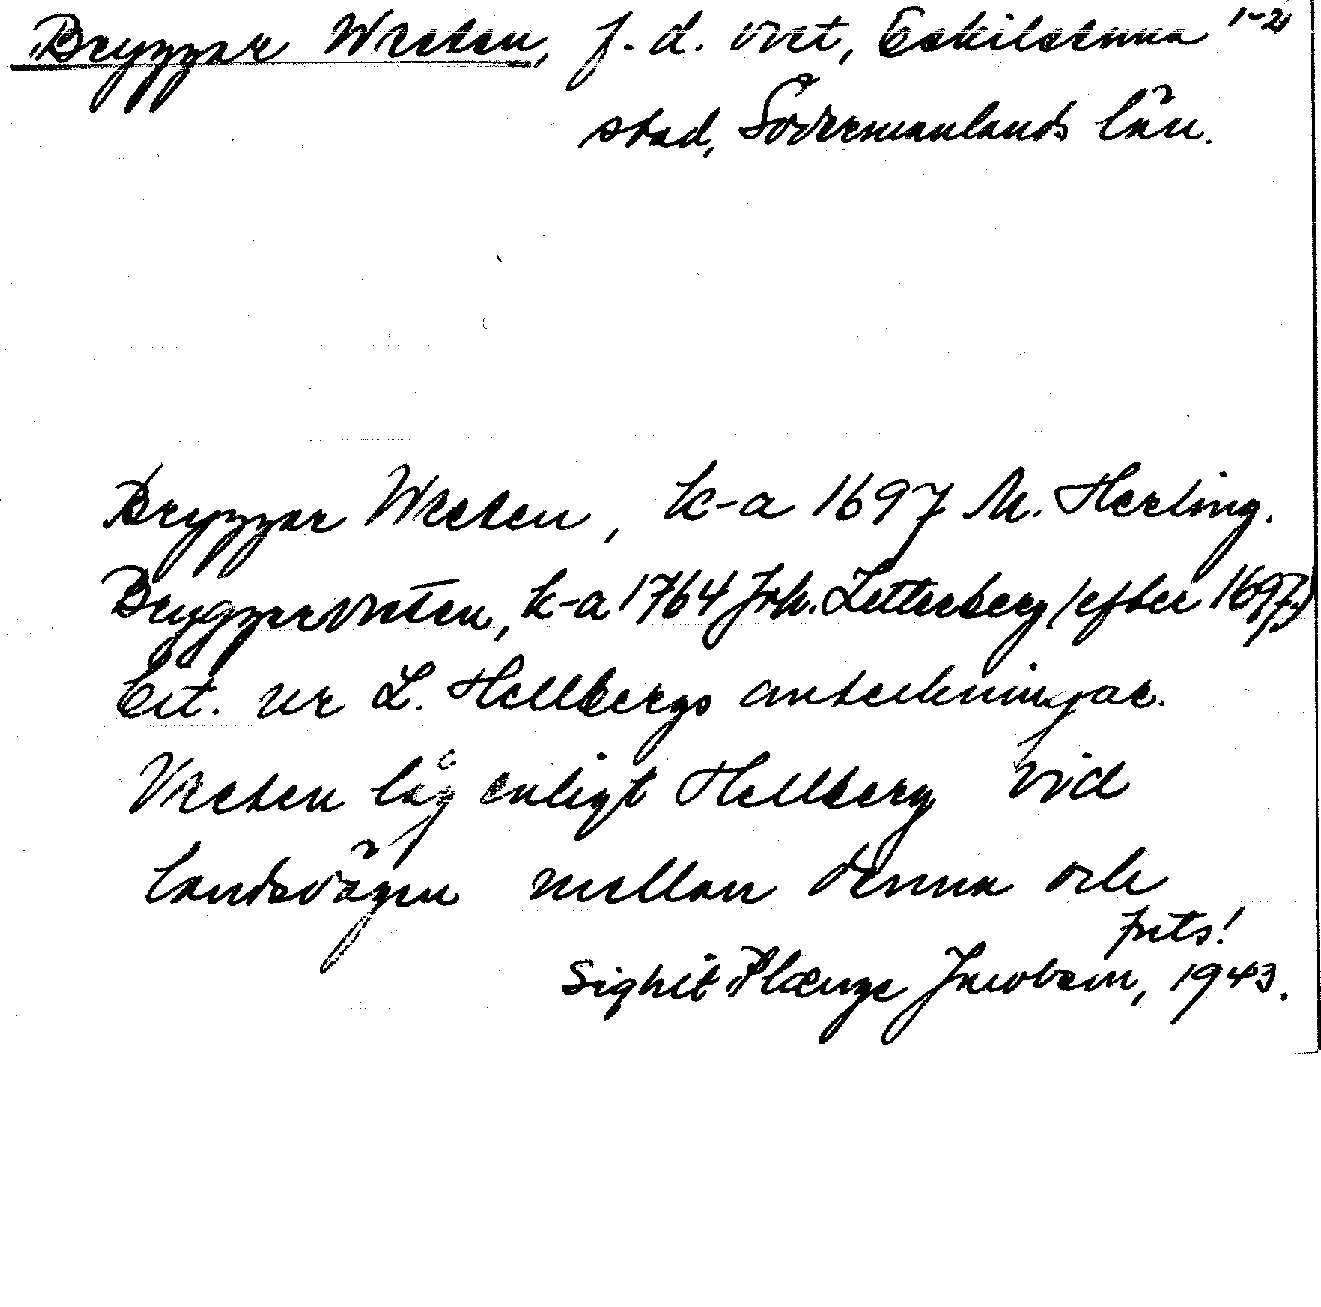 Bryggar Wreten, f. d. vret, Eskilstuna 1-2
stad, Södermanlands län.
Bryggar Wreten, k-a 1697 M. Herling.
Bryggervreten, k-a 1764 Joh. Zetterberg (efter 1697)
Cit. ur L. Hellbergs anteckningar.
Vreten låg enligt Hellberg vid
landsvägen mellan denna och
forts!
Sigurd Plænge Jacobson, 1943.